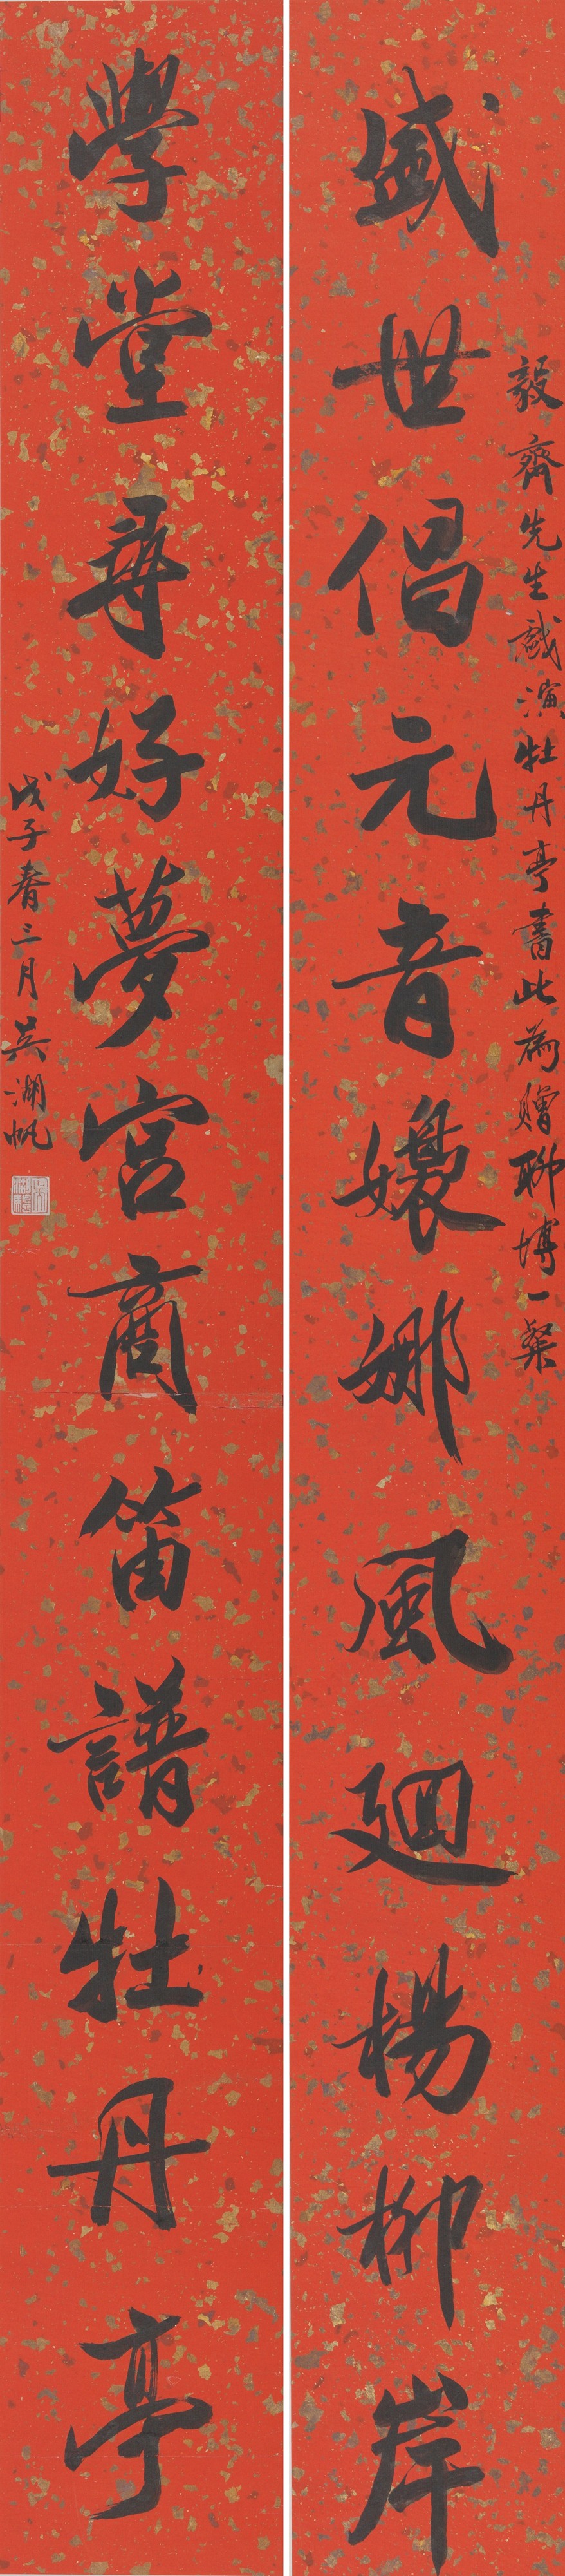 毅齋先生戲演牡丹亭書此為贈聊博一粲
盛世倡元音嬝娜風廻楊柳岸
學堂尋好夢宮商笛譜牡丹亭
戊子春三月吳湖帆